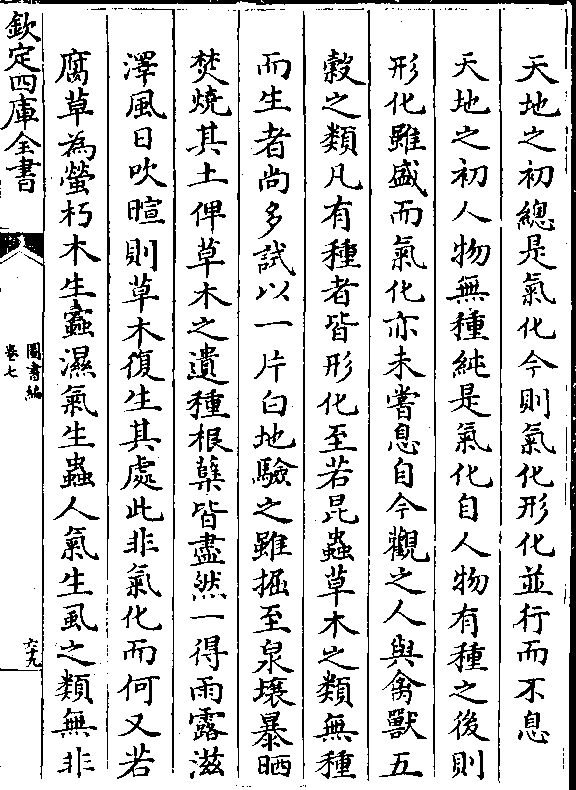 天地之初總是氣化今則氣化形化並行而不息
天地之初人物無種純是氣化自人物有種之後則
形化雖盛而氣化亦未嘗息自今觀之人與禽獸五
穀之類凡有種者皆形化至若昆蟲草木之類無種
而生者尚多試以一片白地驗之雖掘至泉壤暴晒
焚燒其土俾草木之遺種根蘖皆盡然一得雨露滋
澤風日吹暄則草木復生其處此非氣化而何又若
腐草為螢朽木生蠧濕氣生蟲人氣生風之類無非
欽定四庫全書
圖書編
卷七
六十九